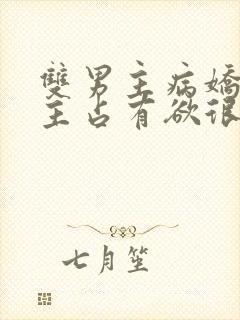 雙男主病嬌
主占有欲很
七月笙